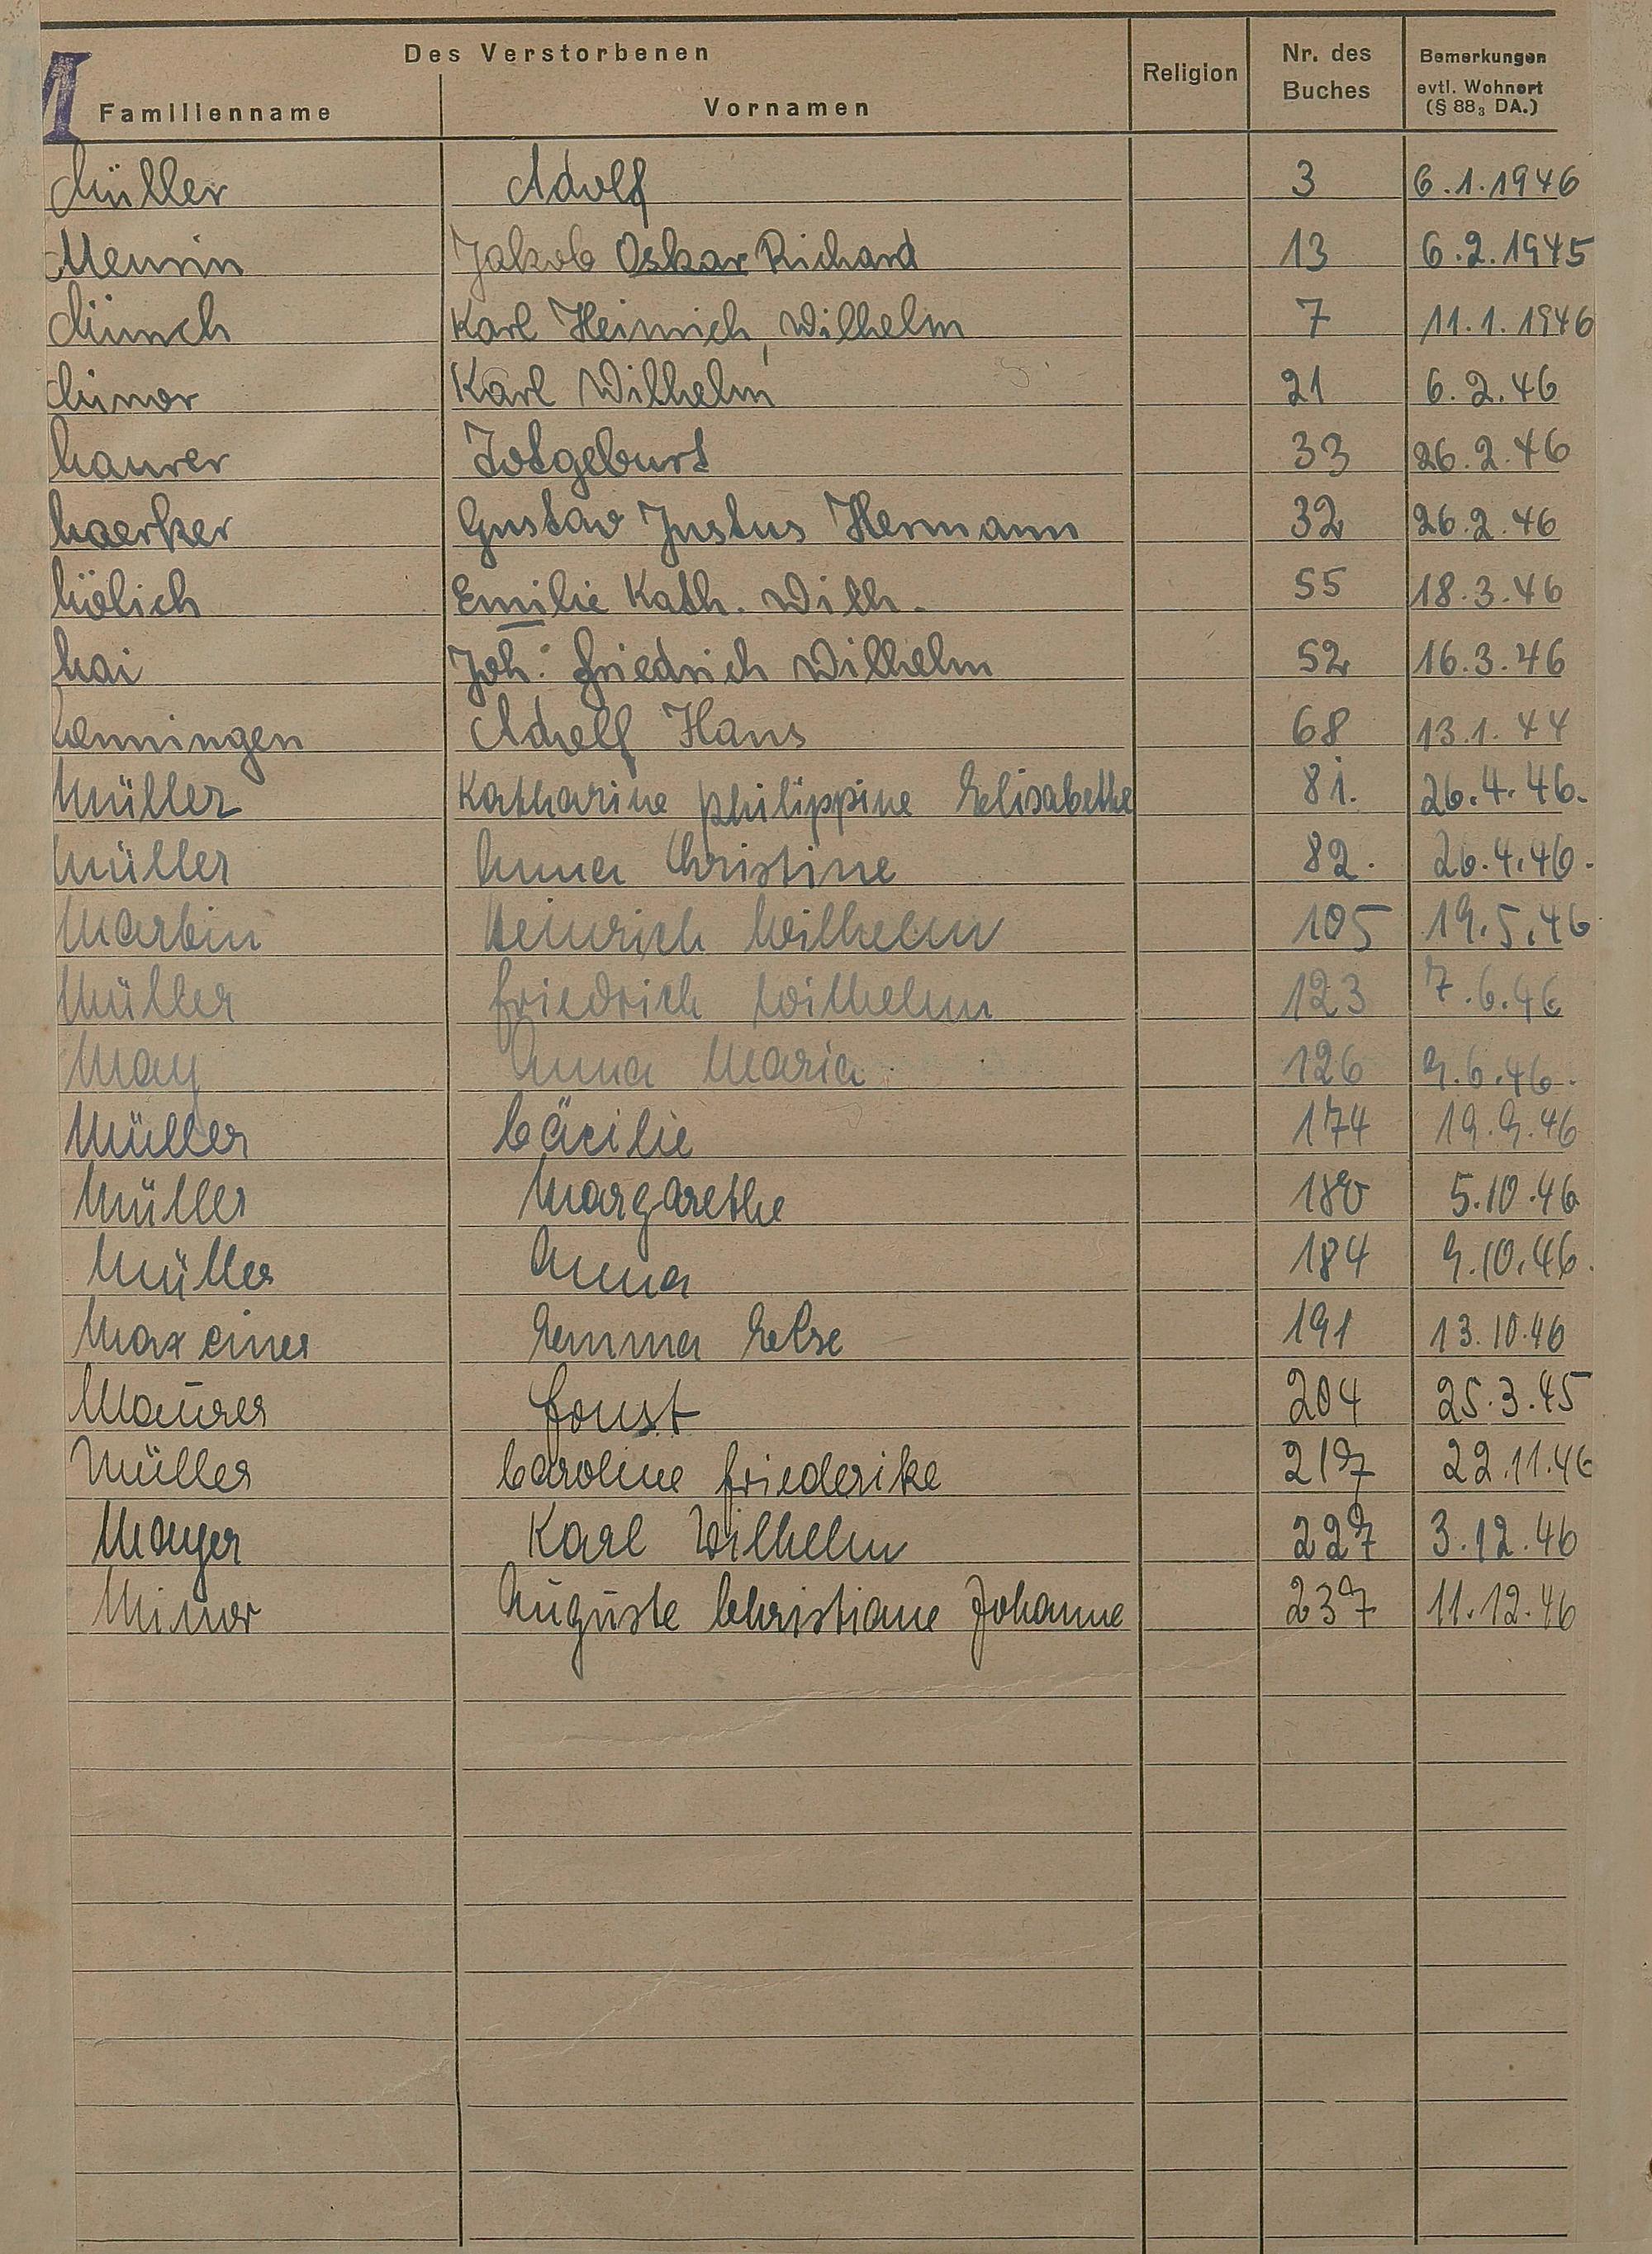 M
Des Verstorbenen
Familienname Vornamen Religion Nr. des Buches Bemerkungen evtl. Wohnort (§ 88₃ DA.)
Müller Adolf 3 6.1.1946
Jakob Oskar Richard 13 6.2.1945
Münch Karl Heinrich, Wilhelm 7 11.1.1946
Minor Karl Wilhelm 21 6.2.46
Maurer Totgeburt 33 26.2.46
Maerker Gustav Justus Hermann 32 26.2.46
Emilie Kath. Wilh. 55 18.3.46
Mai Joh. Friedrich Wilhelm 52 16.3.46
Menningen Adolf Hans 68 13.1.44
Müller Katharine Philippine Elisabethe 81. 26.4.46.
Müller Anna Christine 82. 26.4.46.
Martin Heinrich Wilhelm 105 19.5.46
Müller Friedrich Wilhelm 123 7.6.46
May Anna Maria 126 9.6.46.
Müller Cäcilie 174 19.9.46
Müller Margarethe 180 5.10.46
Müller Anna 184 9.10.46.
Maxeiner Emma Else 191 13.10.46
Maurer Horst 204 25.3.45
Müller Caroline Friederike 217 22.11.46
Mayer Karl Wilhelm 227 3.12.46
Minor Auguste Christiane Johanne 237 11.12.46